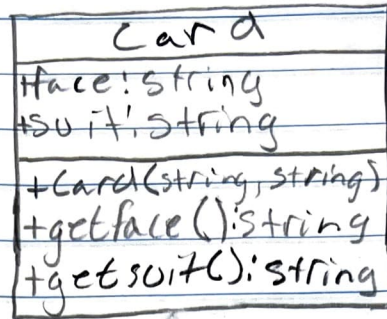 Card
+face: string
+suit: string
+Card(string, string)
+getface(): string
+getsuit(): string